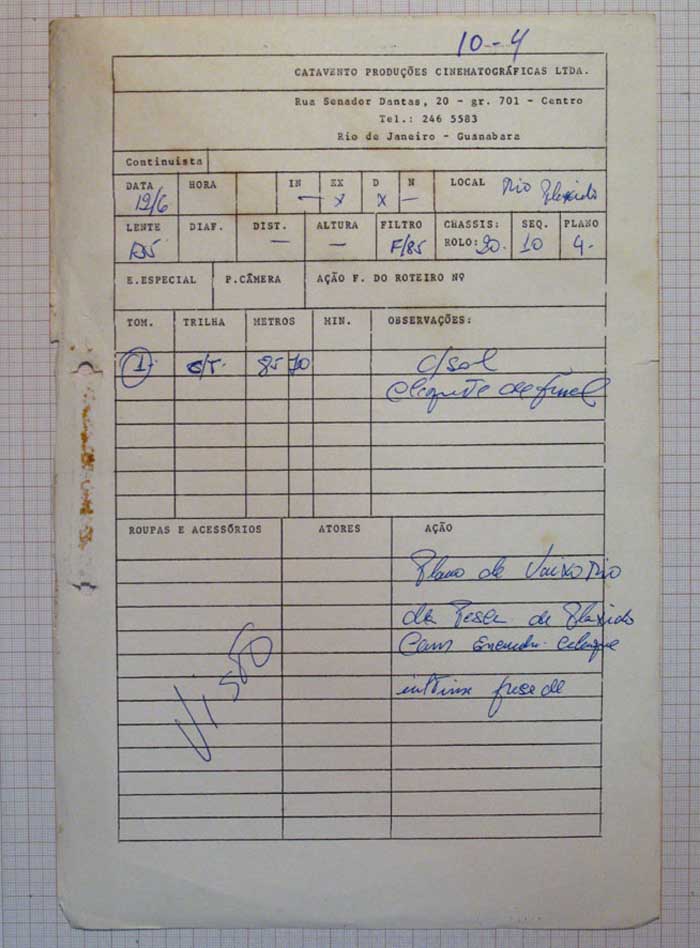 10-4
CATAVENTO PRODUÇÕES CINEMATOGRÁFICAS LTDA.
Rua Senador Dantas, 20 - gr. 701 - Centro
Tel.: 246 5583
Rio de Janeiro - Guanabara
Continuista
DATA HORA IN EX D N LOCAL Rio
12/6 — x x —
LENTE DIAF. DIST. ALTURA FILTRO CHASSIS: SEQ. PLANO
— — F/85 ROLO: 20. 10 4-
E.ESPECIAL P.CÂMERA AÇÃO F. DO ROTEIRO Nº
TOM. TRILHA METROS MIN. OBSERVAÇÕES:
1- 85 70 c/sol
claquete de final
ROUPAS E ACESSÓRIOS ATORES AÇÃO
Plano de Rio
da de
Cam
frase de
Visto